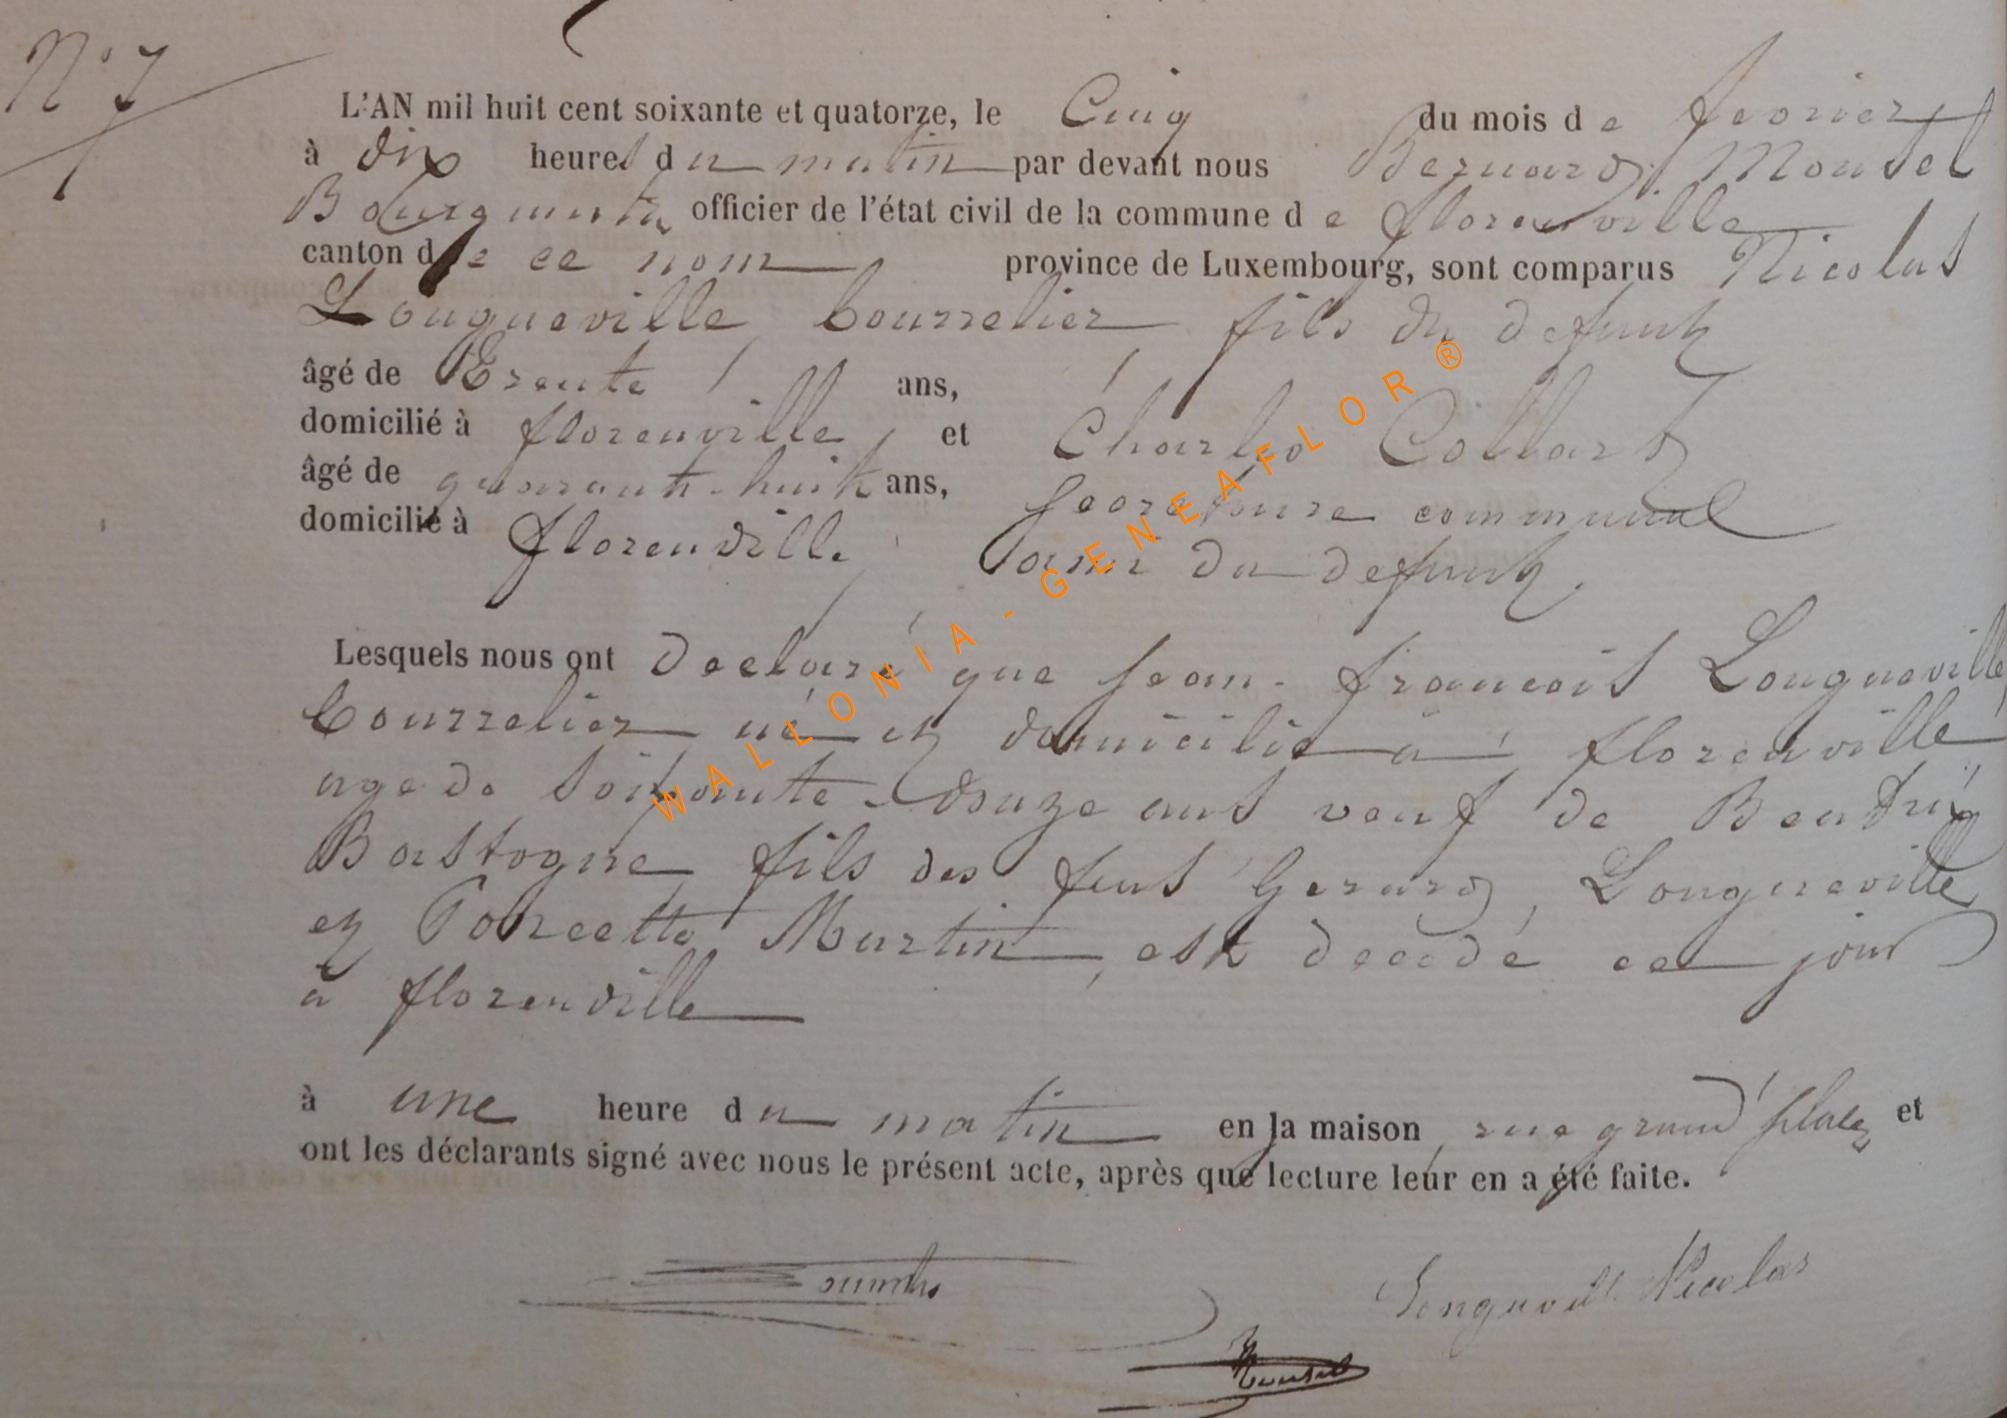 N° 7
L'AN mil huit cent soixante et quatorze, le Cinq du mois de fevrier
à dix heures du matin par devant nous Bernard Mousel
Bourgmestre officier de l'état civil de la commune de florenville
canton de ce nom province de Luxembourg, sont comparus Nicolas
Longueville bourrelier fils du defunt
âgé de Trente ans,
domicilié à florenville, et Charles Collard
âgé de quarante-huit ans, secretaire communal
domicilié à florenville ami du defunt.
Lesquels nous ont declaré que jean-francois Longueville
bourrelier né et domicilié à florenville
age de soixante-douze ans veuf de Beatrix
Bastogne fils des feus Gerard Longueville
et Poncette Martin, est decedé ce jour
à florenville
à une heure du matin en la maison, rue grand'place et
ont les déclarants signé avec nous le présent acte, après que lecture leur en a été faite.
Longueville Nicolas
Mousel
WALLONIA - GENEAFLOR ®